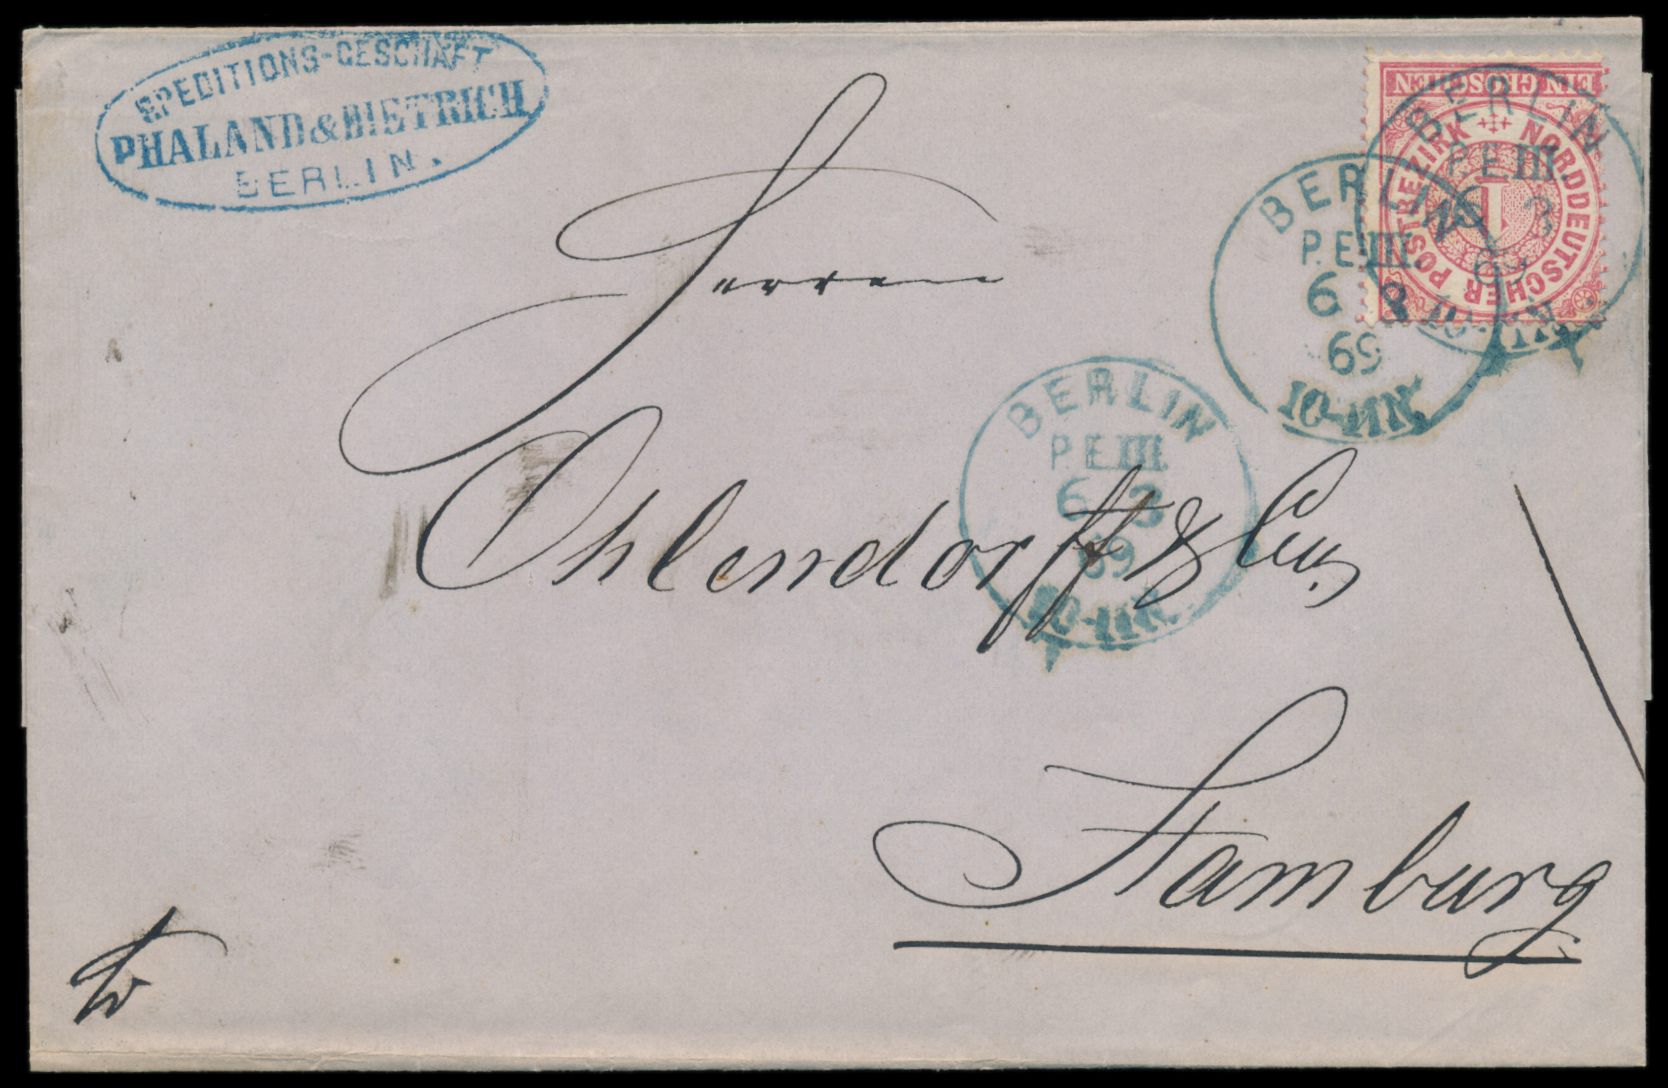 SPEDITIONS-GESCHÄFT
PHALAND & DIETRICH
BERLIN.
EIN GROSCHEN
NORDDEUTSCHER POSTBEZIRK
1
BERLIN
P.E.III.
6 3
69
10-11N.
BERLIN
P.E.III.
6 3
69
10-11N.
Herren
Ohlendorff & Co
BERLIN
P.E.III.
6 3
69
10-11N.
Hamburg